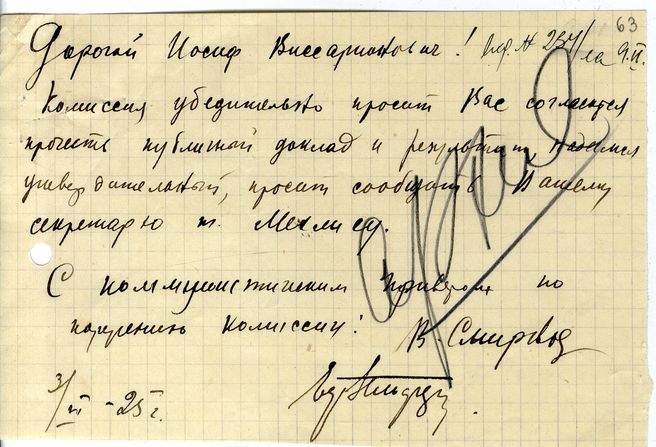 63
Дорогой Иосиф Виссарионович!
Комиссия убедительно просит Вас согласиться
прочесть публичный доклад и результат, надеемся
утвердительный, просит сообщить Вашему
секретарю т. Мехлису.
С коммунистическим приветом по
поручению комиссии: В. Смирнов
3/VI - 25 г.